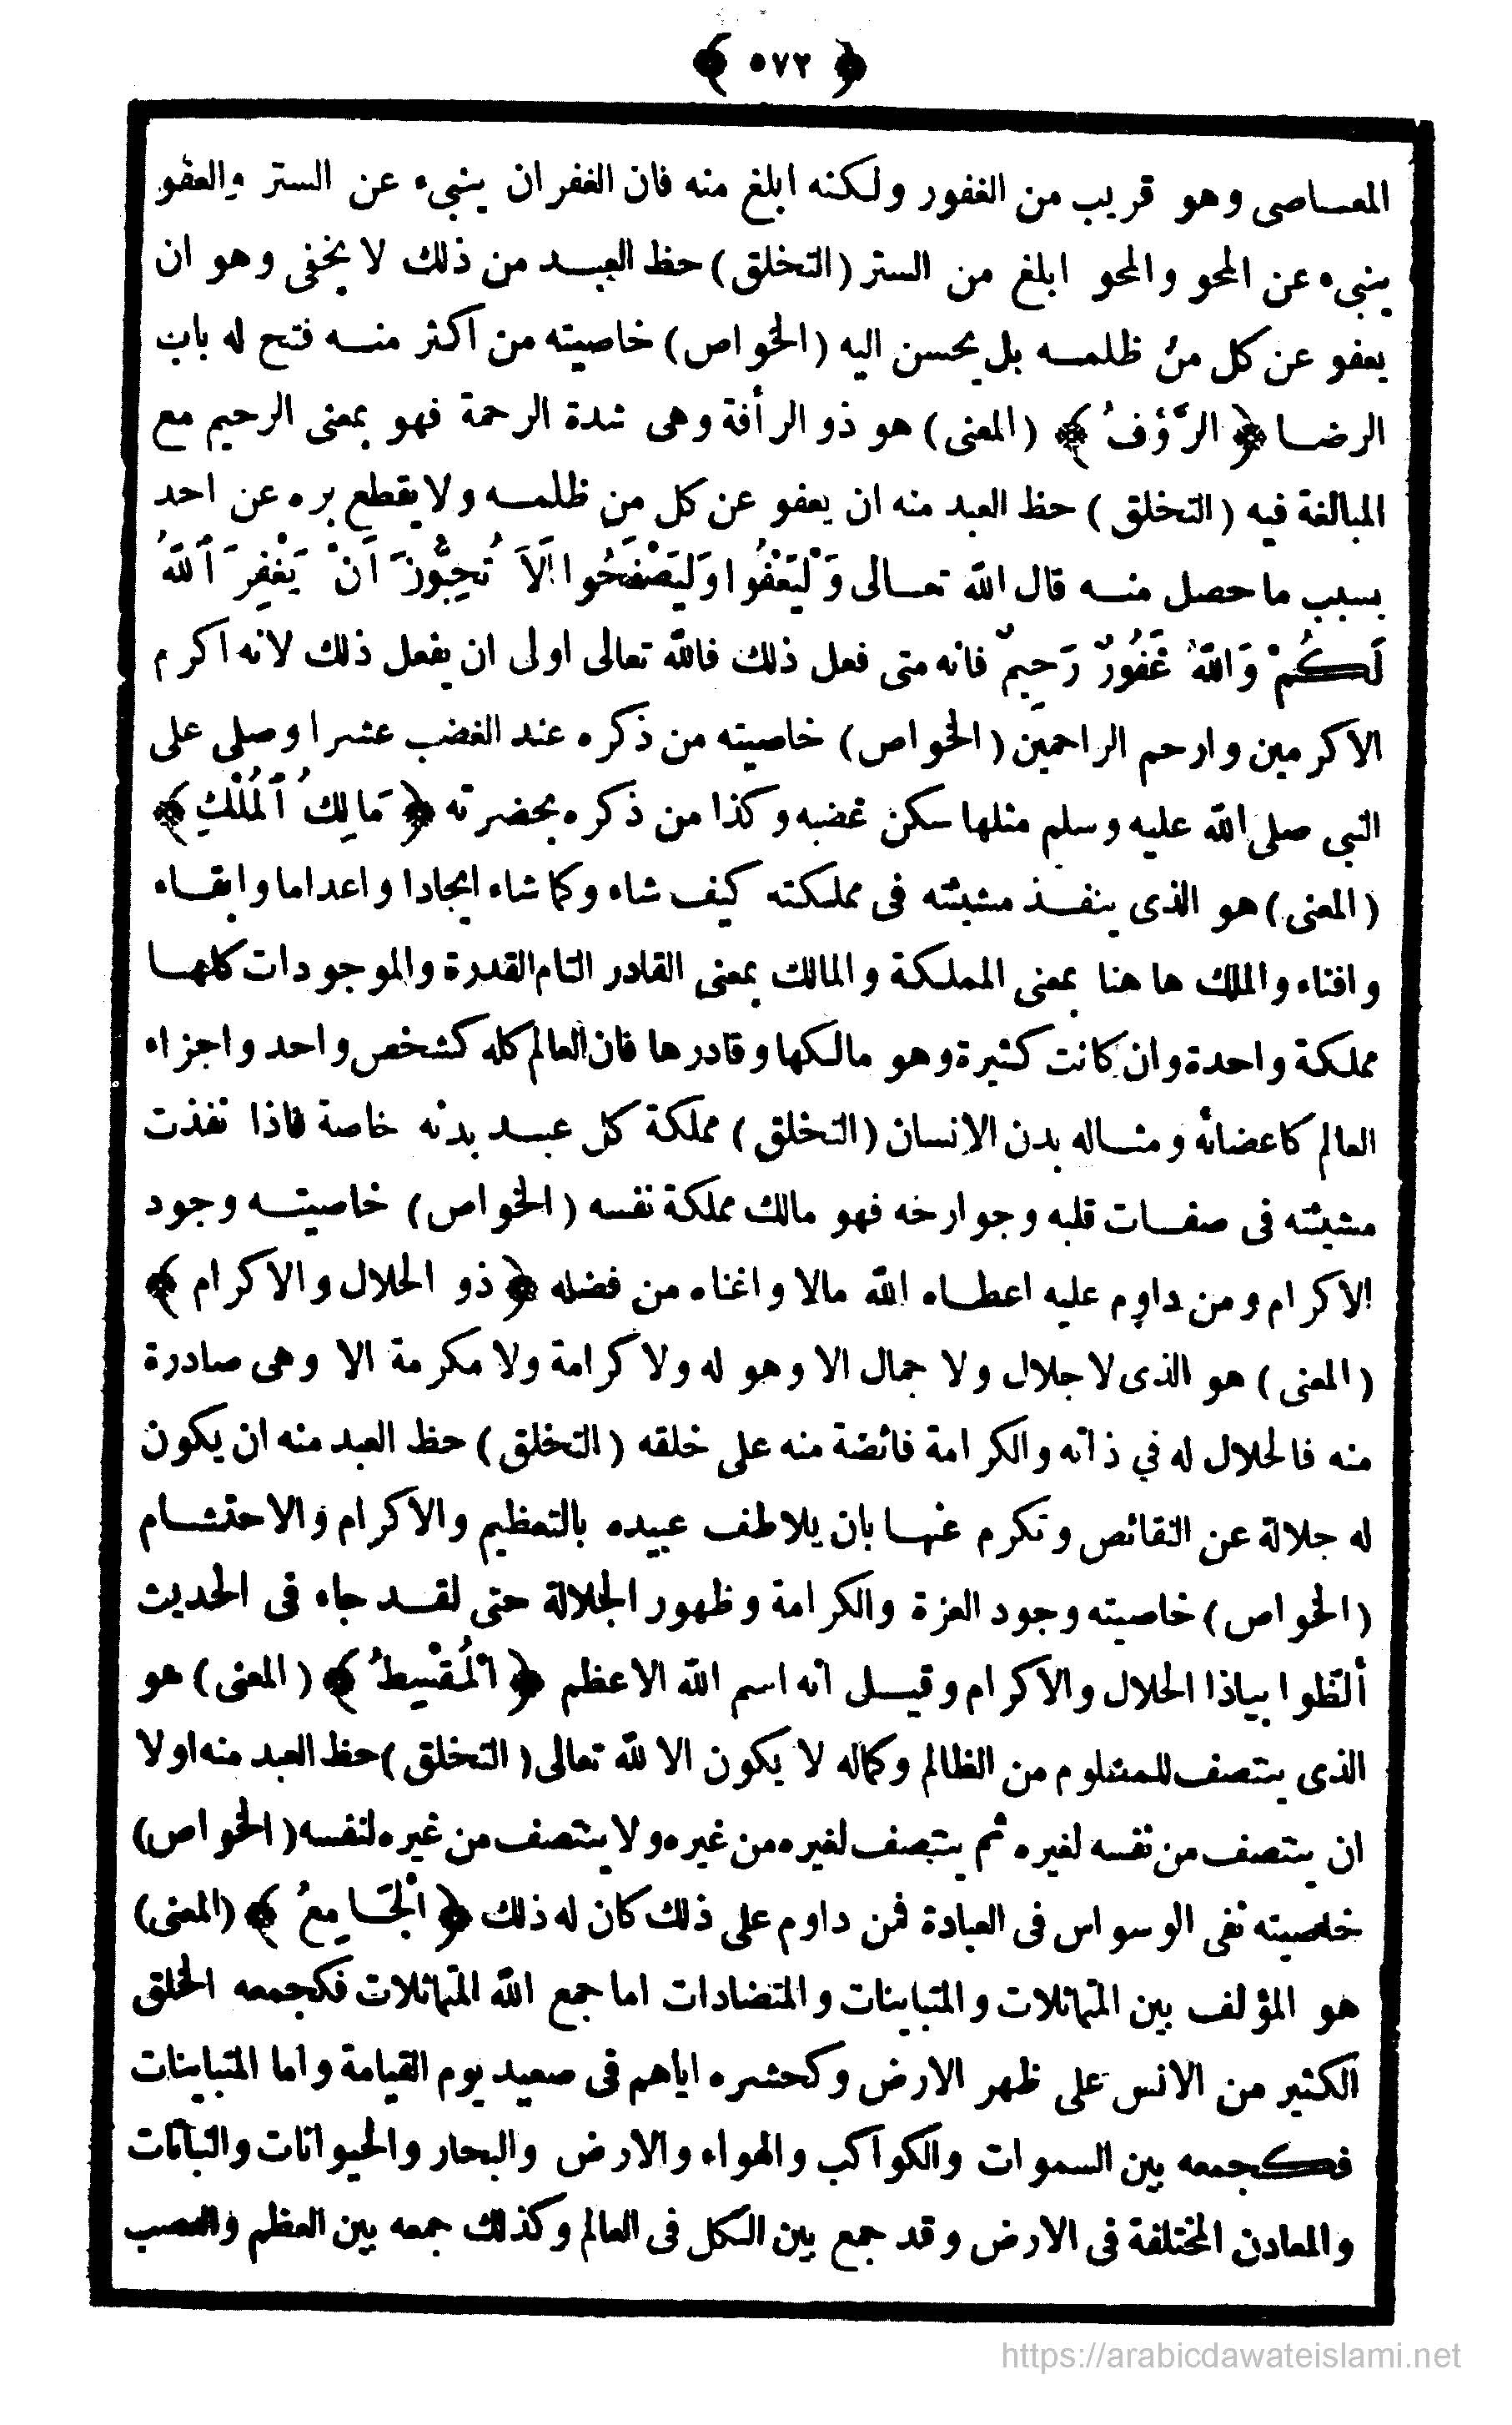 ﴿ ٥٧٢ ﴾
المعاصى وهو قريب من الغفور ولكنه ابلغ منه فان الغفران ينبىء عن الستر والعفو
ينبىء عن المحو والمحو ابلغ من الستر (التخلق) حظ العبد من ذلك لا يخفى وهو ان
يعفو عن كل من ظلمه بل يحسن اليه (الخواص) خاصيته من اكثر منه فتح له باب
الرضا ﴿ الرَّؤُفُ ﴾ (المعنى) هو ذو الرأفة وهى شدة الرحمة فهو بمعنى الرحيم مع
المبالغة فيه (التخلق) حظ العبد منه ان يعفو عن كل من ظلمه ولا يقطع بره عن احد
بسبب ما حصل منه قال الله تعالى وَلْيَعْفُوا وَلْيَصْفَحُوا اَلَا تُحِبُّونَ اَنْ يَغْفِرَ ٱللّٰهُ
لَكُمْ وَاللّٰهُ غَفُورٌ رَحِيمٌ فانه متى فعل ذلك فالله تعالى اولى ان يفعل ذلك لانه اكرم
الاكرمين وارحم الراحمين (الخواص) خاصيته من ذكره عند الغضب عشرا وصلى على
النبى صلى الله عليه وسلم مثلها سكن غضبه وكذا من ذكره بحضرته ﴿ مَالِكُ ٱلْمُلْكِ ﴾
(المعنى) هو الذى ينفذ مشيئته فى مملكته كيف شاء وكما شاء ايجادا واعداما وابقاء
وافناء والملك ها هنا بمعنى المملكة والمالك بمعنى القادر التام القدرة والموجودات كلها
مملكة واحدة وان كانت كثيرة وهو مالكها وقادرها فان العالم كله كشخص واحد واجزاء
العالم كاعضائه ومثاله بدن الانسان (التخلق) مملكة كل عبد بدنه خاصة فاذا نفذت
مشيئته فى صفات قلبه وجوارحه فهو مالك مملكة نفسه (الخواص) خاصيته وجود
الاكرام ومن داوم عليه اعطاه الله مالا واغناه من فضله ﴿ ذو الجلال والاكرام ﴾
(المعنى) هو الذى لا جلال ولا جمال الا وهو له ولا كرامة ولا مكرمة الا وهى صادرة
منه فالجلال له في ذاته والكرامة فائضة منه على خلقه (التخلق) حظ العبد منه ان يكون
له جلالة عن النقائص وتكرم عنها بان يلاطف عبيده بالتعظيم والاكرام والاحتشام
(الخواص) خاصيته وجود العزة والكرامة وظهور الجلالة حتى لقد جاء فى الحديث
ألظوا بياذا الجلال والاكرام وقيل انه اسم الله الاعظم ﴿ اَلْمُقْسِطُ ﴾ (المعنى) هو
الذى ينتصف للمظلوم من الظالم وكماله لا يكون الا لله تعالى (التخلق) حظ العبد منه اولا
ان ينتصف من نفسه لغيره ثم ينتصف لغيره من غيره ولا ينتصف من غيره لنفسه (الخواص)
خاصيته نفى الوسواس فى العبادة فمن داوم على ذلك كان له ذلك ﴿ اَلْجَامِعُ ﴾ (المعنى)
هو المؤلف بين المتماثلات والمتباينات والمتضادات اما جمع الله المتماثلات فكجمعه الخلق
الكثير من الانس على ظهر الارض وكحشره اياهم فى صعيد يوم القيامة واما المتباينات
فكجمعه بين السموات والكواكب والهواء والارض والبحار والحيوانات والنباتات
والمعادن المختلفة فى الارض وقد جمع بين الكل فى العالم وكذلك جمعه بين العظم والعصب
https://arabicdawateislami.net